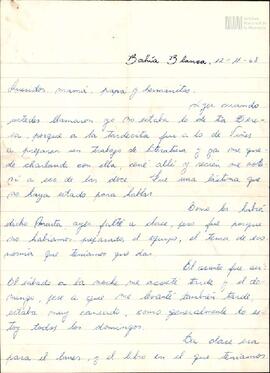 Bahía Blanca, 12-11-68
Queridos mamá, papá y hermanitos:
Ayer cuando
ustedes llamaron yo no estaba lo de tía
porque a la tardecita fui a lo de
a preparar un trabajo de literatura y ya me que-
dé charlando con ella, cené allí y recién me volví
a eso de las doce. Fue una lástima que
no haya estado para hablar.
Como les habrá
dicho Marta, ayer falté a clase, pero fue porque
no habíamos preparado el equipo, el tema de eco-
nomía que teníamos que dar.
El asunto fue así:
El sábado a la noche me acosté tarde y el do-
mingo, pese a que me levanté también tarde,
estaba muy cansado, como generalmente lo es-
toy todos los domingos.
La clase era
para el lunes, y el libro en el que teníamos